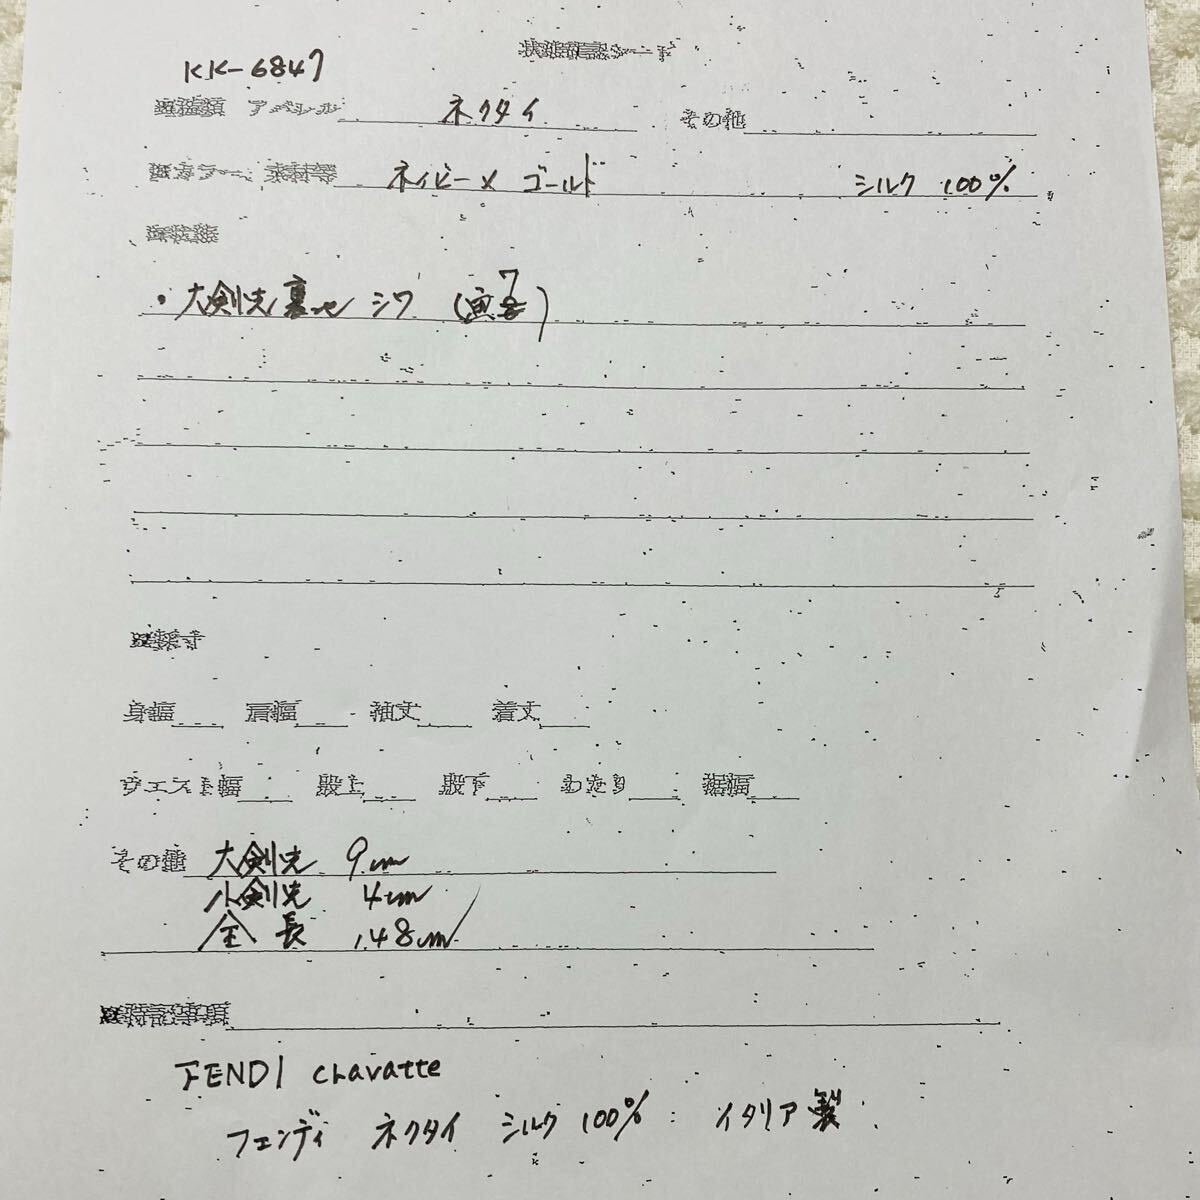 状態確認シート
KK-6847
種類 アパレル ネクタイ その他
カラー 素材等 ネイビー × ゴールド シルク 100%
状態
・大剣先裏 シワ (画7)
採寸
身幅 肩幅 袖丈 着丈
ウエスト幅 股上 股下 わたり 裾幅
その他 大剣先 9cm
小剣先 4cm
全長 148cm
特記事項
FENDI cravatte
フェンディ ネクタイ シルク 100% イタリア製